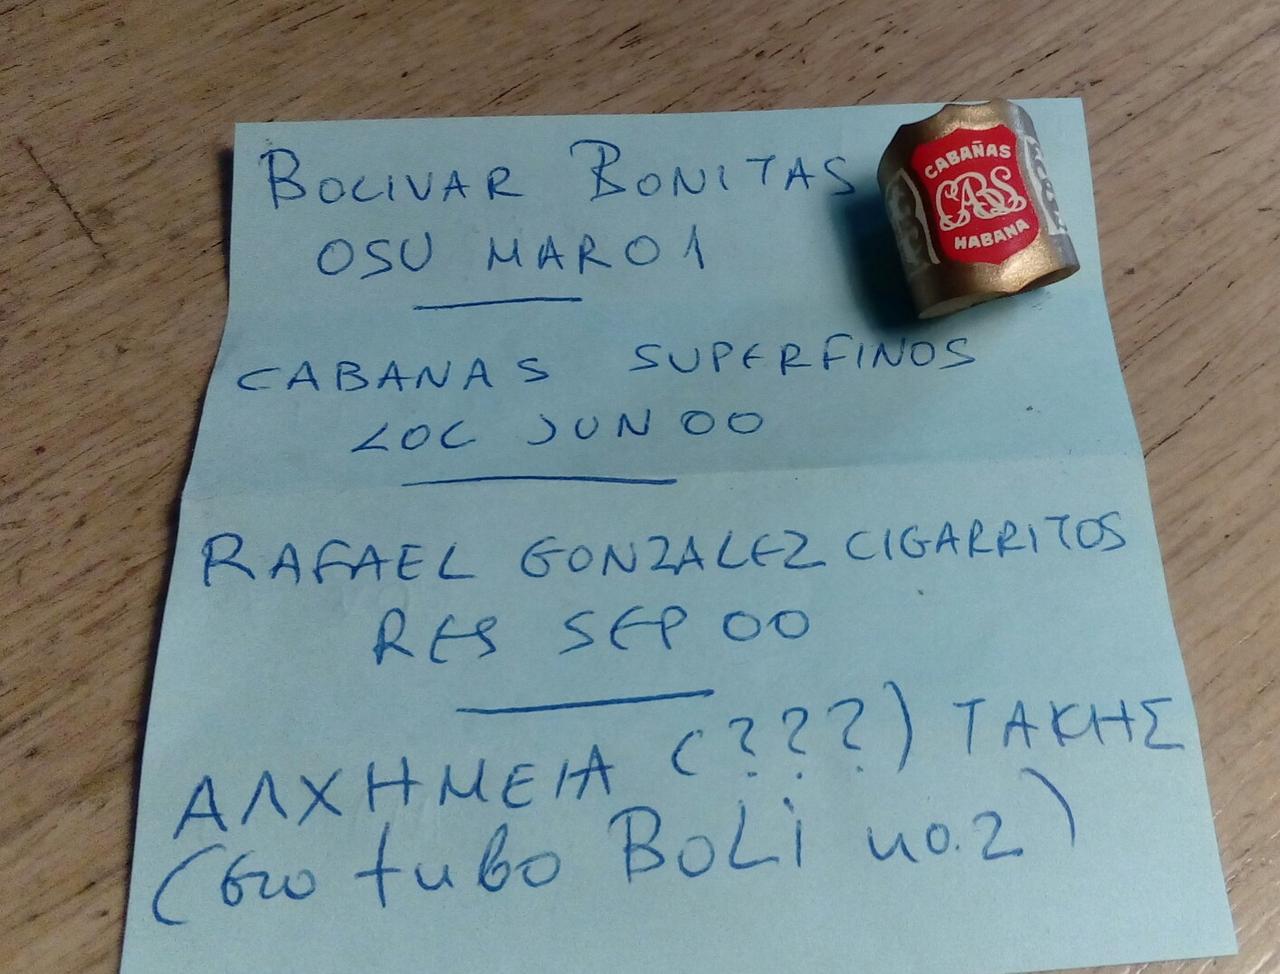 BOLIVAR BONITAS
OSU MAR01
CABANAS SUPERFINOS
LOC JUN 00
RAFAEL GONZALEZ CIGARRITOS
RES SEP 00
ΑΛΧΗΜΕΙΑ (???) ΤΑΚΗΣ
(στο tubo BOLi no.2)
CABAÑAS
CABS
HABANA